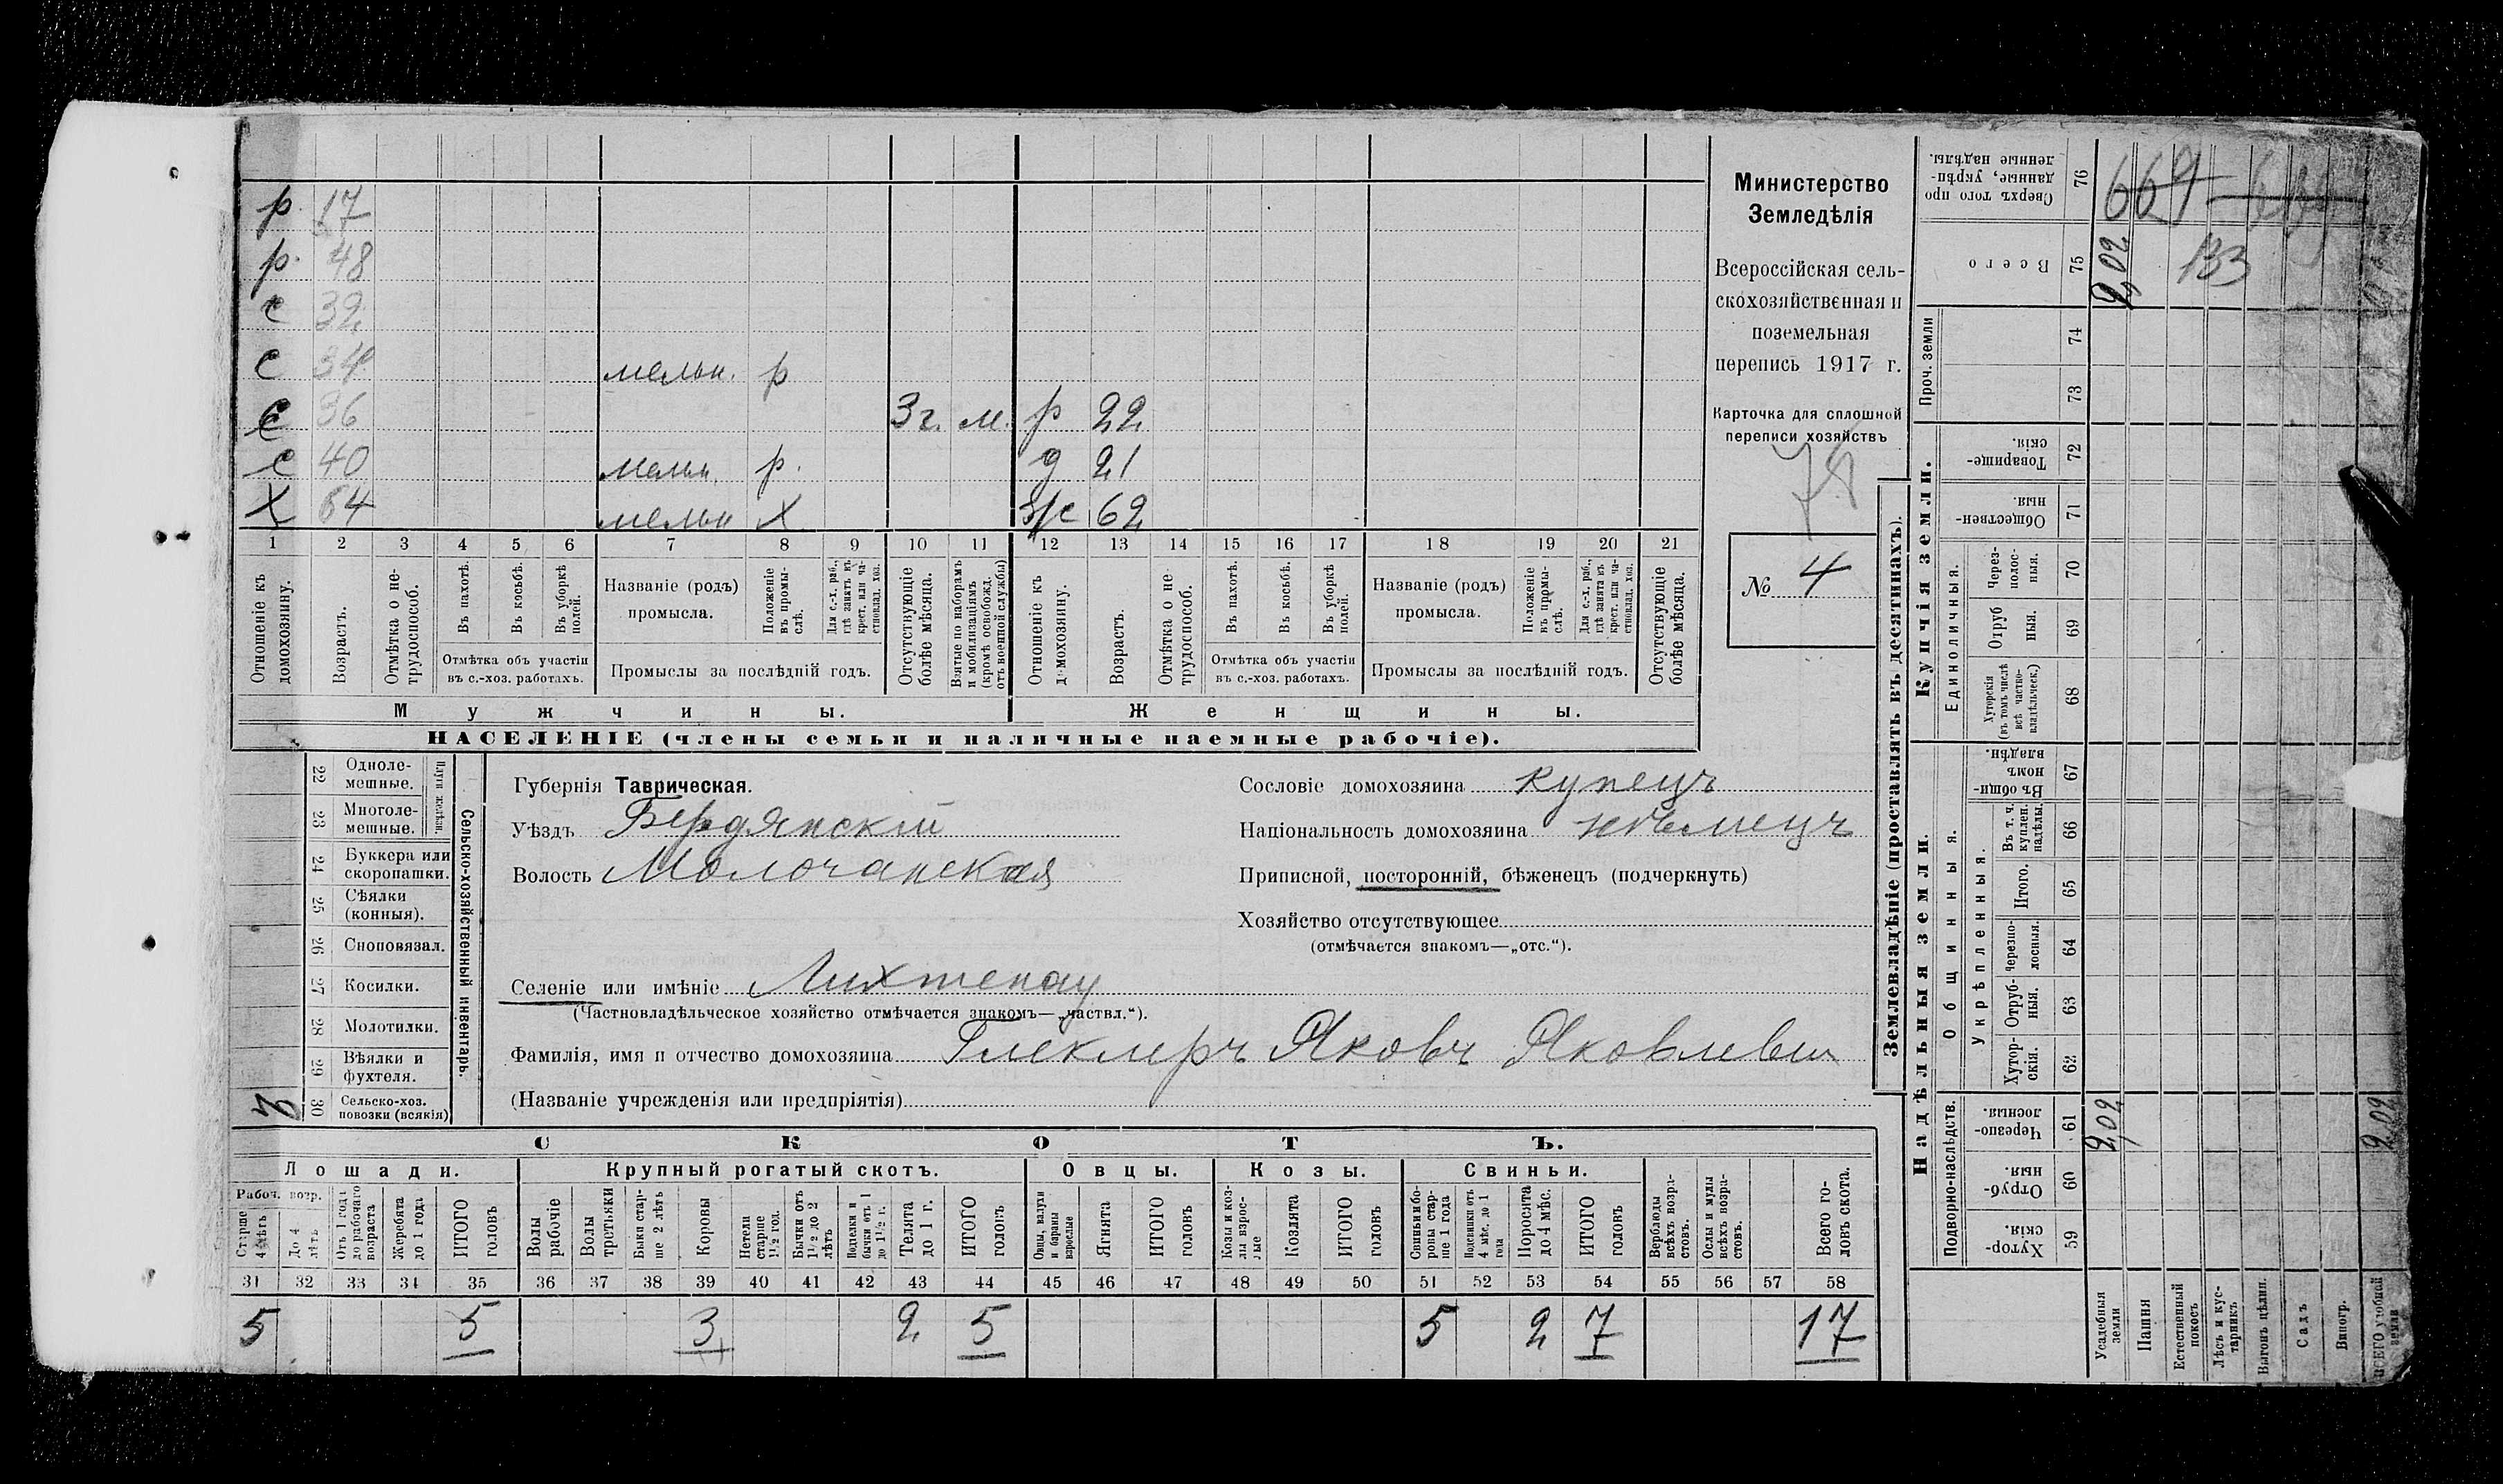 р. 17
р. 48
с 32
с 34 мельн. р
с 36 3 г. м. р 22
с 40 мельн. р. д 21
Х 64 мельн Х з/с 62
1 2 3 4 5 6 7 8 9 10 11 12 13 14 15 16 17 18 19 20 21
Отношеніе къ домохозяину.
Возрастъ.
Отмѣтка о не-трудоспособ.
Въ пахотѣ.
Въ косьбѣ.
Въ уборкѣ полей.
Отмѣтка объ участіи въ с.-хоз. работахъ.
Названіе (родъ) промысла.
Положеніе въ промы-слѣ.
Для с.-х. раб., гдѣ занятъ въ крест. или ча-стновлад. хоз.
Промыслы за послѣдній годъ.
Отсутствующіе болѣе мѣсяца.
Взятые по наборамъ и мобилизаціямъ (кромѣ освобожд. отъ военной службы)
Отношеніе къ домохозяину.
Возрастъ.
Отмѣтка о не трудоспособ.
Въ пахотѣ.
Въ косьбѣ.
Въ уборкѣ полей.
Отмѣтка объ участіи въ с.-хоз. работахъ.
Названіе (родъ) промысла.
Положеніе въ промы-слѣ.
Для с.-х. раб., гдѣ занята въ крест. или ча-стновлад. хоз.
Промыслы за послѣдній годъ.
Отсутствующіе болѣе мѣсяца.
Мужчины. Женщины.
НАСЕЛЕНІЕ (члены семьи и наличные наемные рабочіе).
Министерство
Земледѣлія
Всероссійская сель-
скохозяйственная и
поземельная
перепись 1917 г.
Карточка для сплошной
переписи хозяйствъ
№ 4
22 Одноле-мешные.
23 Многоле-мешные.
24 Буккера или скоропашки.
25 Сѣялки (конныя).
26 Сноповязал.
27 Косилки.
28 Молотилки.
29 Вѣялки и фухтеля.
30 Сельско-хоз. повозки (всякія)
Сельско-хозяйственный инвентарь.
Губернія Таврическая.
Уѣздъ Бердянскій
Волость Молочанская
Сословіе домохозяина купецъ
Національность домохозяина нѣмецъ
Приписной, посторонній, бѣженецъ (подчеркнуть)
Хозяйство отсутствующее
(отмѣчается знакомъ—„отс.“).
Селеніе или имѣніе Лихтенау
(Частновладѣльческое хозяйство отмѣчается знакомъ—„частвл.“).
Фамилія, имя и отчество домохозяина Глеклеръ Яковъ Яковлевич
(Названіе учрежденія или предпріятія)
СКОТЪ.
Лошади. Крупный рогатый скотъ. Овцы. Козы. Свиньи.
Рабоч. возр.
Старше 4 лѣтъ
До 4 лѣтъ
Отъ 1 года до рабочаго возраста
Жеребята до 1 года
ИТОГО головъ
Волы рабочіе
Волы третьяки
Быки стар-ше 2 лѣтъ
Коровы
Нетели старше 1½ год.
Бычки отъ 1½ до 2 лѣтъ
Подтелки и бычки отъ 1 до 1½ г.
Телята до 1 г.
ИТОГО головъ
Овцы, валухи и бараны взрослые
Ягнята
ИТОГО головъ
Козы и коз-лы взрос-лые
Козлята
ИТОГО головъ
Свиньи и бо-ровы стар-ше 1 года
Подсвинки отъ 4 мѣс. до 1 года
Поросята до 4 мѣс.
ИТОГО головъ
Верблюды всѣхъ возра-стовъ.
Ослы и мулы всѣхъ возра-стовъ.
Всего го-ловъ скота.
31 32 33 34 35 36 37 38 39 40 41 42 43 44 45 46 47 48 49 50 51 52 53 54 55 56 57 58
5 5 3 2 5 5 2 7 17
Землевладѣніе (проставлять въ десятинахъ).
Купчія земли.
Надѣльныя земли.
76 Сверхъ того про данные, укрѣп-ленные надѣлы. 669
75 Всего 2,02 133
Проч. земли
74
73
72 Товарище-скій.
71 Обществен-ныя.
Единоличныя.
70 Через-полос-ныя.
69 Отруб ныя.
68 Хуторскія (въ томъ числѣ всѣ частно-владѣльческ.)
67 Въ общи-номъ владѣн.
Общинныя.
Укрѣпленныя.
66 Въ т. ч. куплен. надѣлы.
65 Итого.
64 Черезпо-лосныя.
63 Отруб-ныя.
62 Хутор-скія.
Подворно-наслѣдств.
61 Черезпо-лосныя. 2,02 2,02
60 Отруб-ныя.
59 Хутор-скія.
Усадебныя земли
Пашня
Естественный покосъ
Лѣсъ и кус-тарникъ
Выгонъ цѣлин.
Садъ
Виногр.
ВСЕГО удобной земли